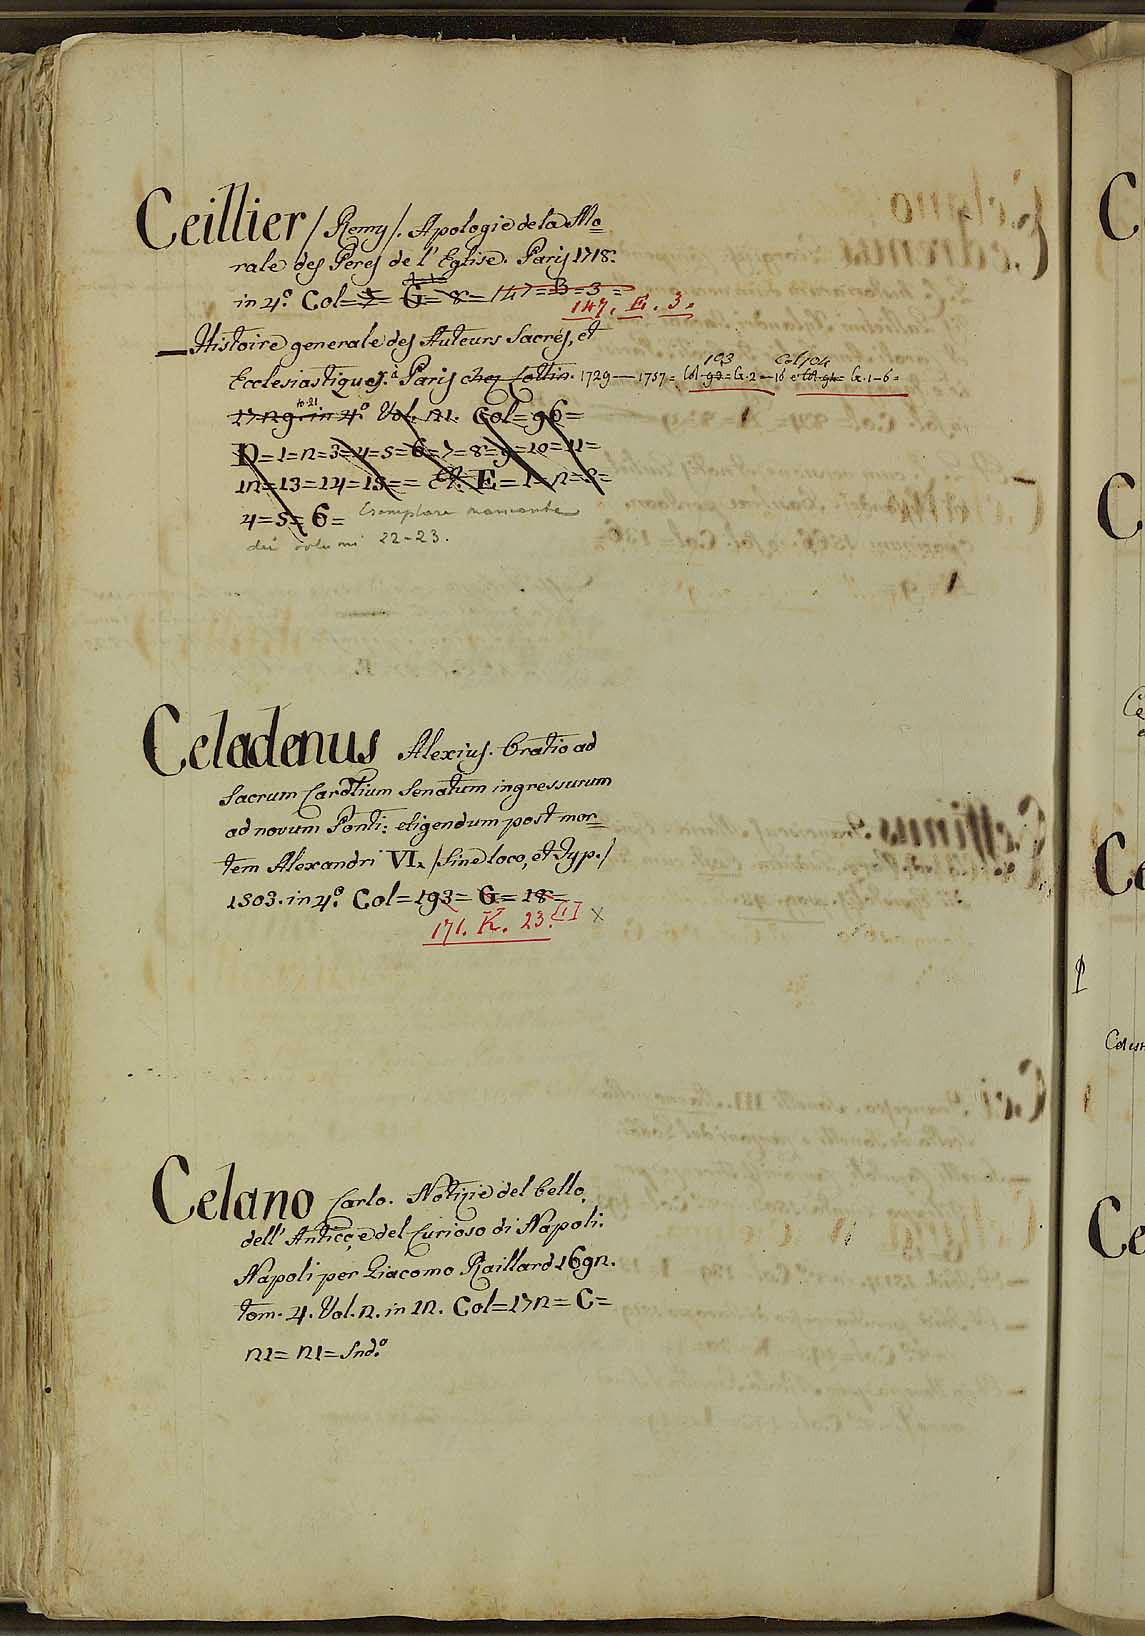 Ceillier / Remy /. Apologie de la Mo=
rale des Peres de l'Eglise. Paris 1718.
in 4.º Col= G= 8= 147= B= 3=
147. E. 3.
— Histoire generale des Auteurs Sacrés, et
Ecclesiastiques. à Paris chez Cottin. 1729 — 1757= Col. 98= G. 2 — 16 e Col. 91= G. 1-6=
103 Col 104
1729. in 4.º Vol. 21. Col= 96=
D= 1= 2= 3= 4= 5= 6= 7= 8= 9= 10= 11=
12= 13= 14= 15= = Et= E= 1= 2= 3=
4= 5= 6= Esemplare mancante
dei volumi 22-23.
Celadenus Alexius. Oratio ad
Sacrum Cardlium Senatum ingressurum
ad novum Ponti: eligendum post mor=
tem Alexandri VI. / Sine loco, et Typ. /
1503. in 4.º Col= 193= G= 18=
171. K. 23. [1] x
Celano Carlo. Notizie del bello,
dell' Antico, e del Curioso di Napoli.
Napoli per Giacomo Raillard 1692.
tom. 4. Vol. 2. in 12. Col= 172= C=
21= 21= Sndº